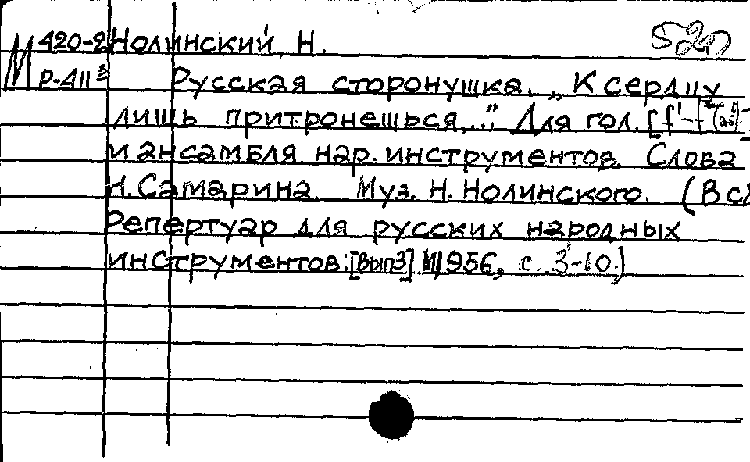 М 420-2 Нолинский, Н.
Р-411
Русская сторонушка. „К сердцу
лишь притронешься..." Для гол.
и ансамбля нар. инструментов. Слова
Н. Самарина. Муз. Н. Нолинского. (В сб
Репертуар для русских народных
инструментов: [Вып 3] М, 1956, с. 3-10.)